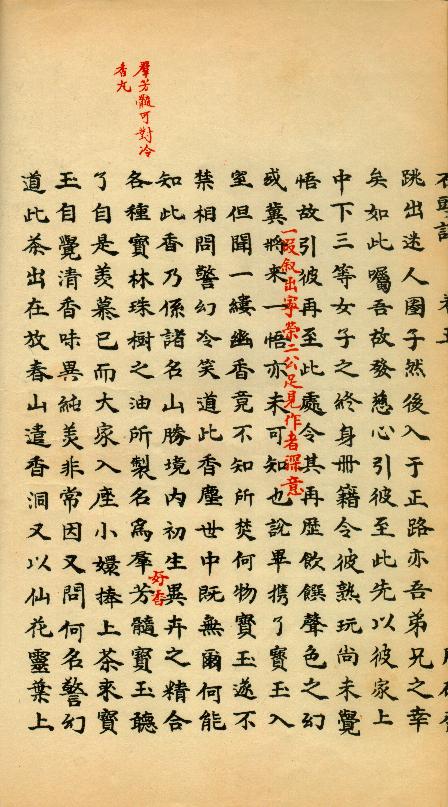 石頭記 卷五
跳出迷人圈子然後入于正路亦吾弟兄之幸
矣如此囑吾故發慈心引彼至此先以彼家上
中下三等女子之終身冊籍令彼熟玩尚未覺
悟故引彼再至此處令其再歷飲饌聲色之幻
一段叙出寧榮二公足見作者深意
或冀將來一悟亦未可知也說畢携了寶玉入
室但聞一縷幽香竟不知所焚何物寶玉遂不
禁相問警幻冷笑道此香塵世中既無爾何能
知此香乃係諸名山勝境內初生異卉之精合
好香
羣芳髓可對冷
香丸
各種寶林珠樹之油所製名爲羣芳髓寶玉聽
了自是羡慕已而大家入座小嬛捧上茶來寶
玉自覺清香味異純美非常因又問何名警幻
道此茶出在放春山遣香洞又以仙花靈葉上